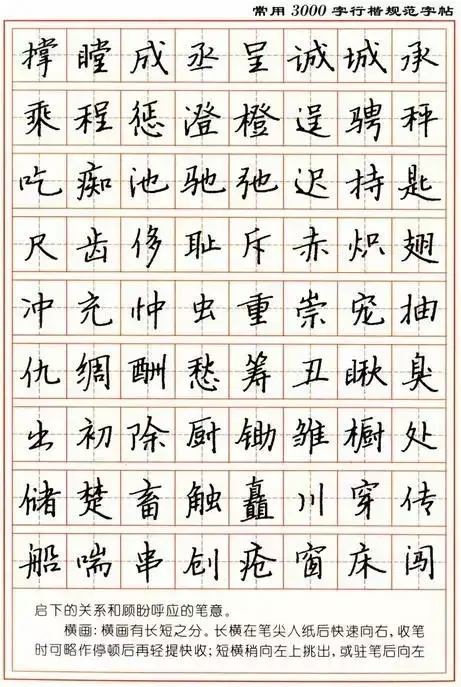 常用3000字行楷规范字帖
撑瞠成丞呈诚城承
乘程惩澄橙逞骋秤
吃痴池驰弛迟持匙
尺齿侈耻斥赤炽翅
冲充忡虫重崇宠抽
仇绸酬愁筹丑瞅臭
出初除厨锄雏橱处
储楚畜触矗川穿传
船喘串创疮窗床闯
启下的关系和顾盼呼应的笔意。
横画:横画有长短之分。长横在笔尖入纸后快速向右,收笔
时可略作停顿后再轻提快收;短横稍向左上挑出,或驻笔后向左